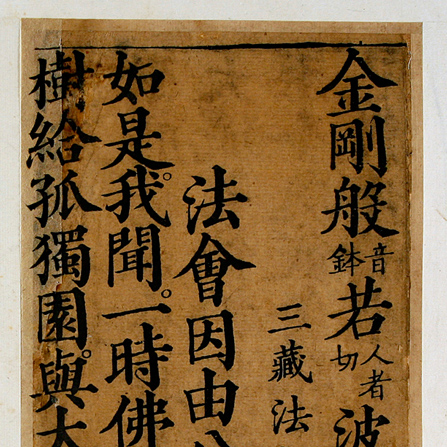 金剛般音鉢若人者切波
三藏法
法會因由
如是我聞。一時佛
樹給孤獨園。與大